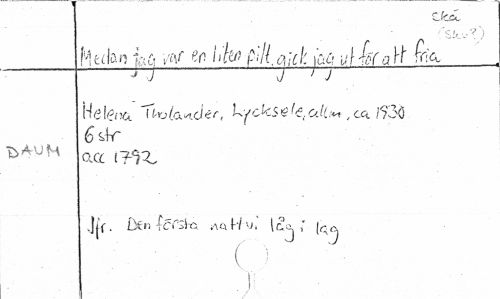 skä
(skv?)
Medan jag var en liten pilt, gick jag ut för att fria
Helena Tholander, Lycksele, allm, ca 1930
6 str
DAUM
acc 1792
Jfr. Den första natt vi låg i lag